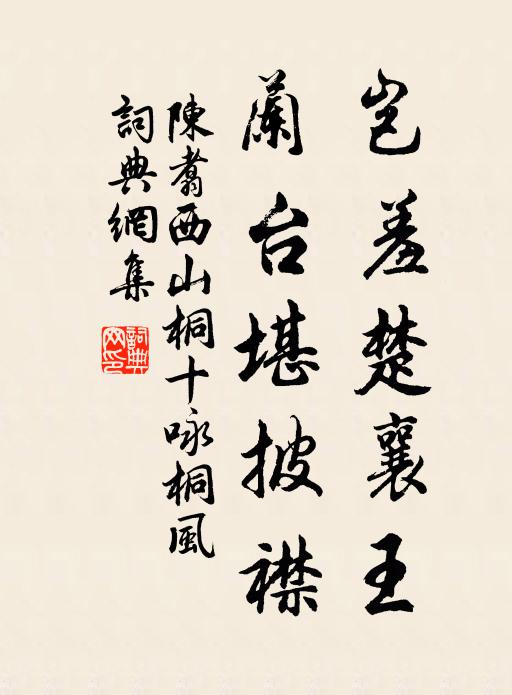 岂羞楚襄王
蘭台堪披襟
陳翥西山桐十咏桐風
詞典網集
詞典網印